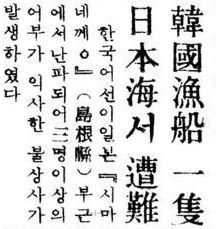 韓國漁船一隻
日本海서遭難
한국어선이일본『시마
네께ㅇ』(島根縣) 부근
에서난파되어三명이상의
어부가 익사한 불상사가
발생하였다